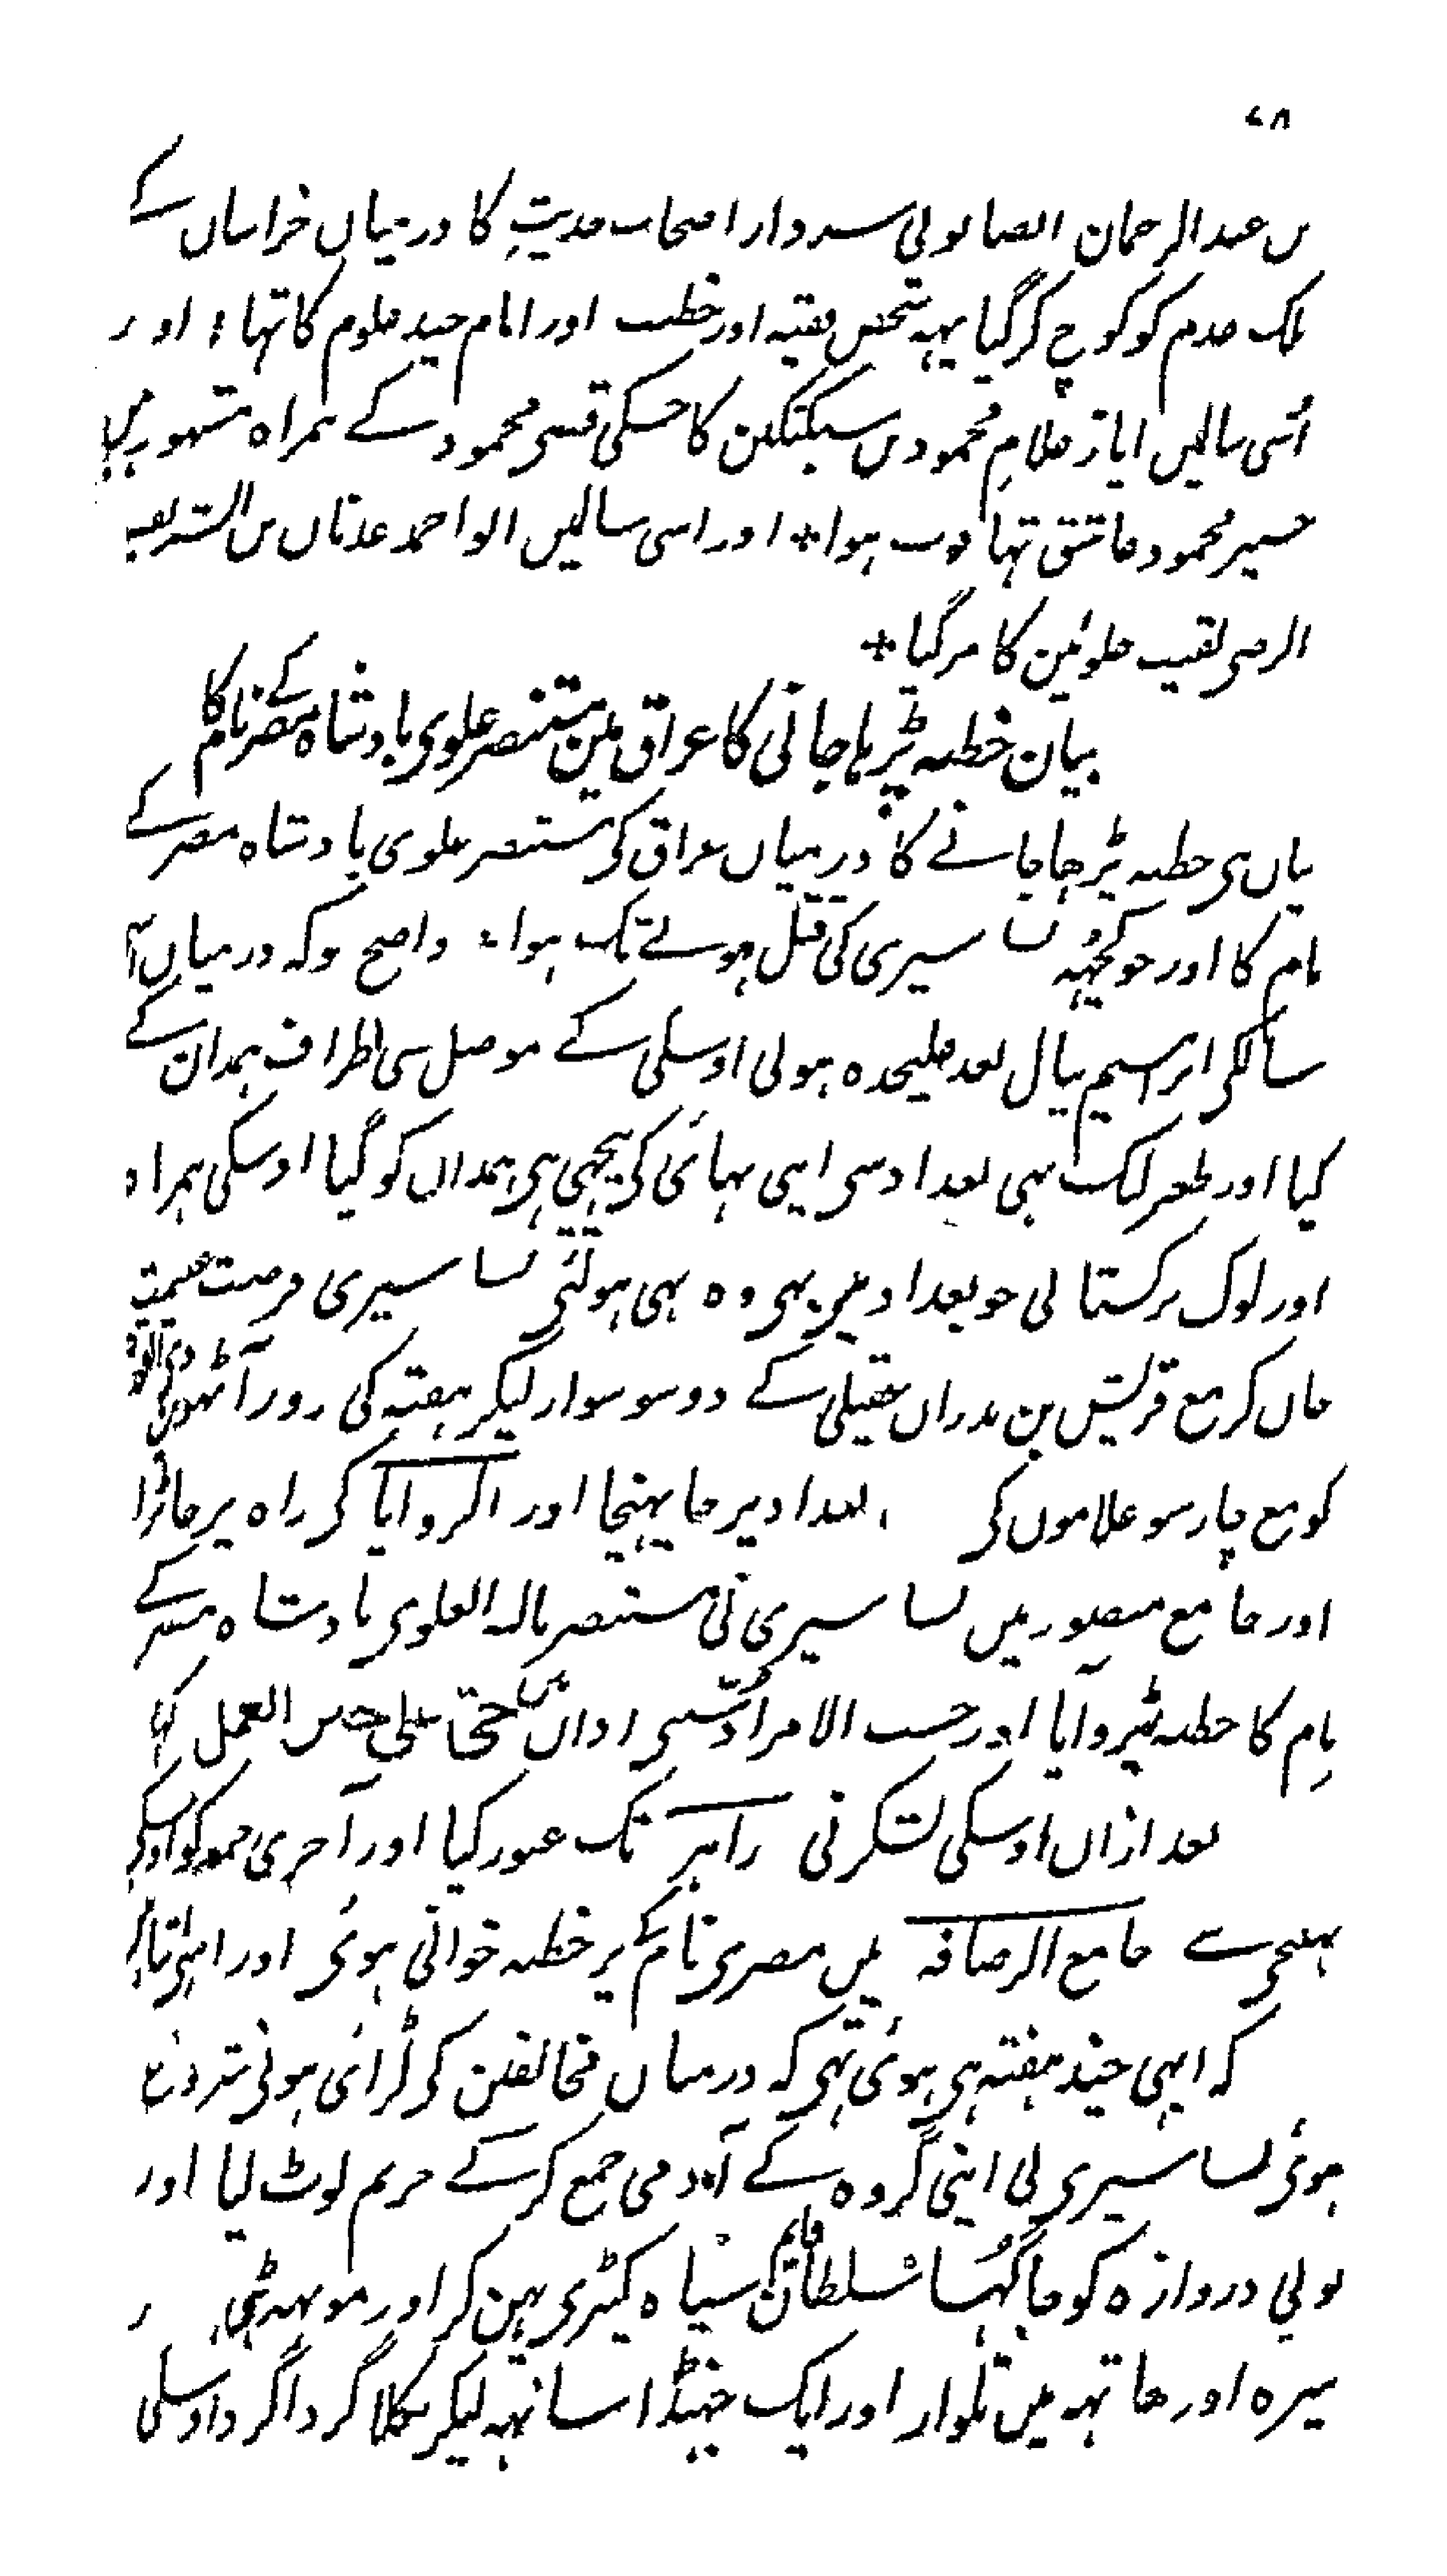 ۷۸
بن عبد الرحمان الصابونی سردار اصحاب حدیث کا درمیان خراسان کے
ملک عدم کو کوچ کر گیا یہہ شخص فقیہ اور خطیب اور امام چند علوم کا تہا ؛ اور
اُسی سالمیں ایاز غلامِ محمود بن سبکتکین کا جسکی قصے محمود کے ہمراہ مشہور ہیں
جسپر محمود عاشق تہا فوت ہوا * اور اسی سالمیں ابو احمد عدنان بن الشریف
الرضی نقیب علوئین کا مر گیا *
بیان خطبہ پڑہا جانی کا عراق مین مستنصر علوی بادشاہ مصر کے نام کا
بیان ہی خطبہ پڑہا جانے کا درمیان عراق کی مستنصر علوی بادشاہ مصر کے
نام کا اور جو کُچہہ بساسیری کی قتل ہونے تک ہوا ؛ واضح ہو کہ درمیان
سالکی ابراہیم نیال بعد علیحدہ ہونی اوسکی کے موصل سی اطراف ہمدان کے
گیا اور طغرلبک بہی بغداد سی اپنی بہائی کی پیچہی ہی ہمدان کو گیا اوسکی ہمراہ
اور لوگ ترکستانی جو بغداد میں تہی وہ بہی ہولئی بساسیری فرصت غنیمت
جان کر مع قریش بن بدران عقیلی کے دو سو سوار لیکر ہفتہ کی روز آٹہویں ذی القعدہ
کو مع چار سو غلاموں کی بغداد پر جا پہنچا اور اکر وایا کی راہ پر جا اُترا
اور جامع منصور میں بساسیری نی مستنصر باللہ العلوی بادشاہ مصر کے
نام کا خطبہ پڑہوایا اور حسب الامر اُسی اذاں میں حیّ علی خیر العمل کہا
بعد ازاں اُوسکی لشکر نی زاہر تک عبور کیا اور آخری جمعہ کو اوسکی
پہنچی سے جامع الرصافہ میں مصری کے نام پر خطبہ خوانی ہوئی اور
کہ ابہی چند ہفتہ ہی ہوئی تہی کہ درمیان مخالفین کی لڑائی ہونی شروع
ہوئی بساسیری نی اپنی گروہ کے آدمی جمع کرکے حریم لوٹ لیا اور
نوبی دروازہ کو جا گُہسا سلطان قایم سیاہ کپڑی پہن کر اور مونہہ
نیزہ اور ہاتہہ میں تلوار اور ایک جہنڈا ساتہہ لیکر نکلا گرداگرد اوسکی